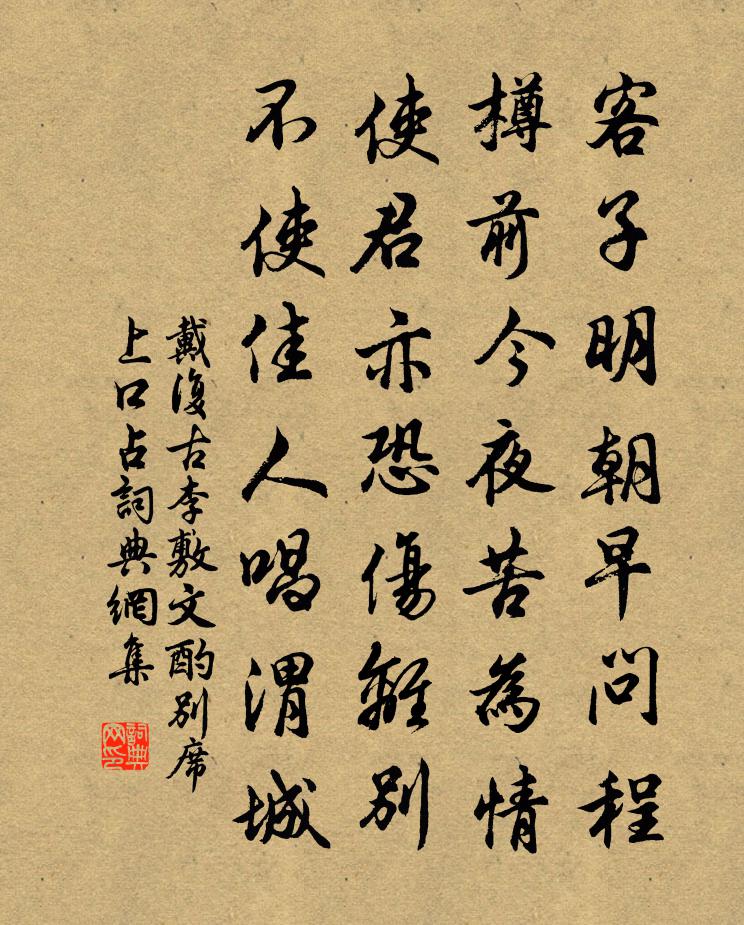 客子明朝早問程
樽前今夜苦為情
使君亦恐傷離別
不使佳人唱渭城
戴復古李敷文酌別席
上口占詞典網集
詞典網印